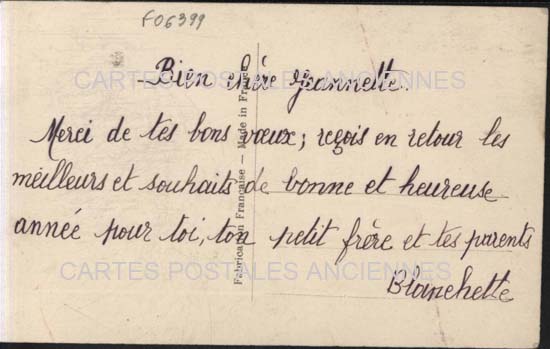 F06399
Bien chère Jeannette.
CARTES POSTALES ANCIENNES
Merci de tes bons vœux; reçois en retour les
meilleurs et souhaits de bonne et heureuse
année pour toi, ton petit frère et tes parents
CARTES POSTALES ANCIENNES
Blanchette
Fabrication Française — Made in France